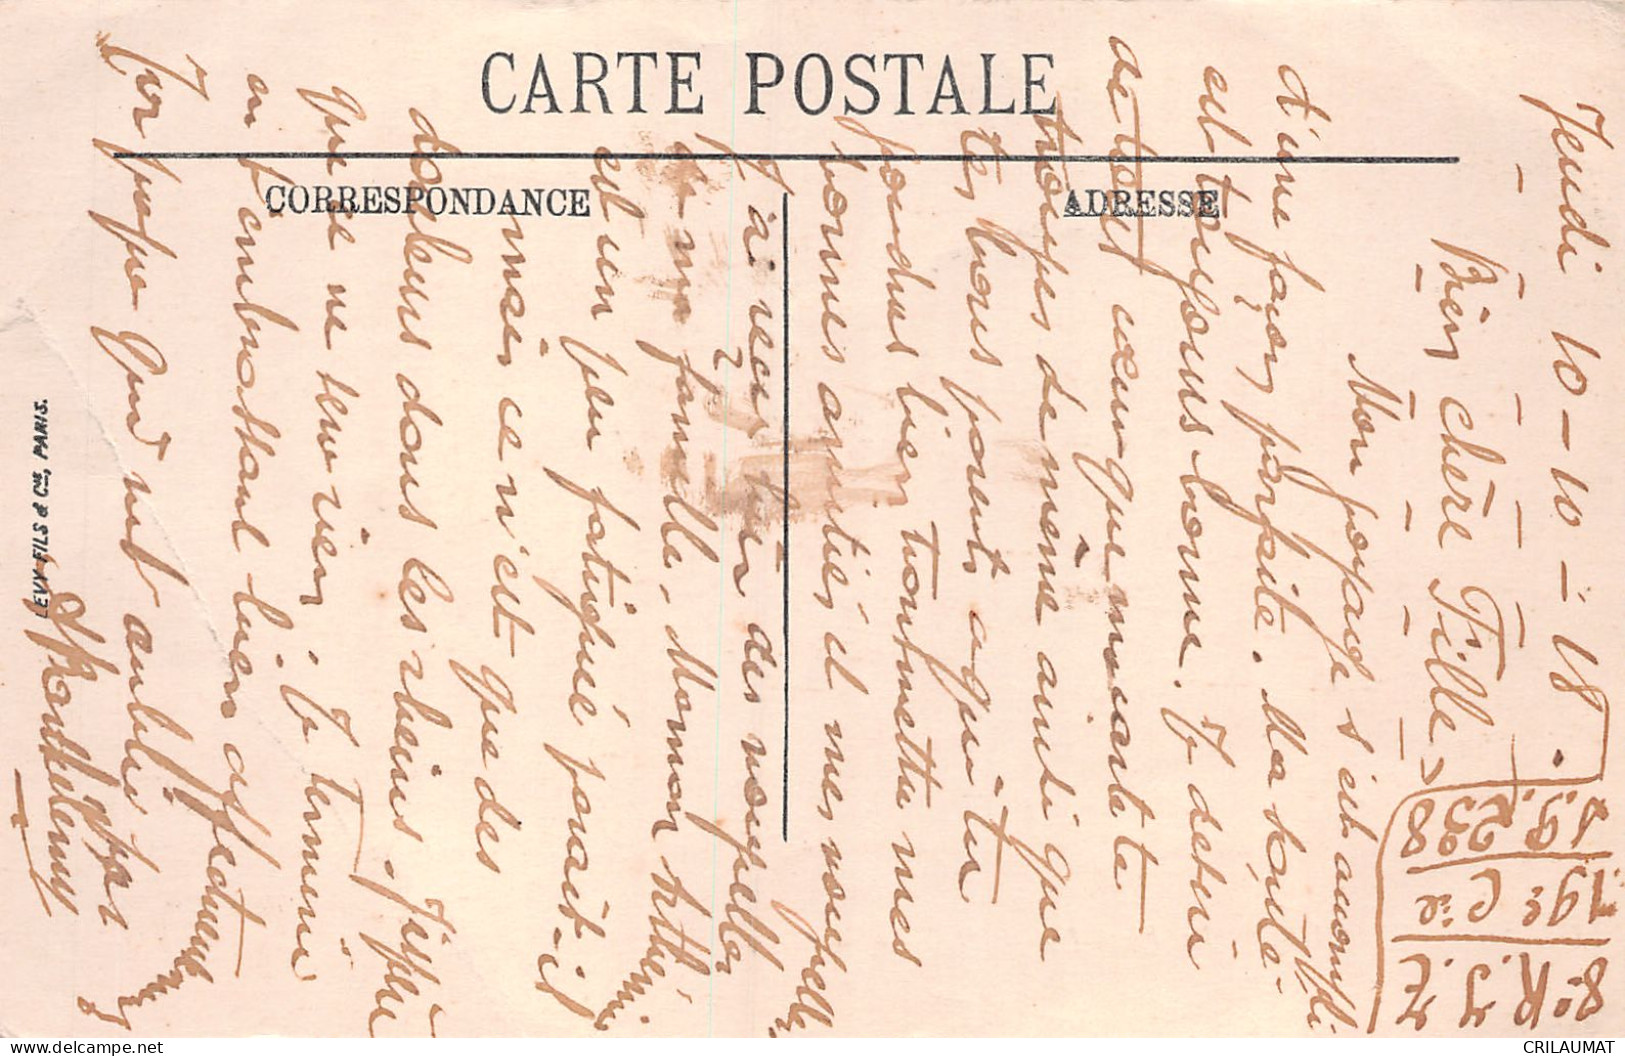 CARTE POSTALE
CORRESPONDANCE
ADRESSE
LEVY FILS & Cie, PARIS.
Jeudi 10-10-18.
Bien chère Fille
Mon voyage s'est accompli
d'une façon parfaite. Ma santé
est toujours bonne. Je désire
de tout cœur que ma carte
trouves de même ainsi que
tes bons parents a qui tu
voudras bien transmettre mes
bonnes amitiés et mes nouvelles
J'ai reçu hier des nouvelles
de ma famille. Maman
est un peu fatiguée parait-il
mais ce n'est que des
douleurs dans les reins. J'espère
que ce ne sera rien. Je termine
en t'embrassant bien affectueusement
Ton qui ne t'oublie
8e R. I. T.
19e Cie
S.P. 238
CRILAUMAT